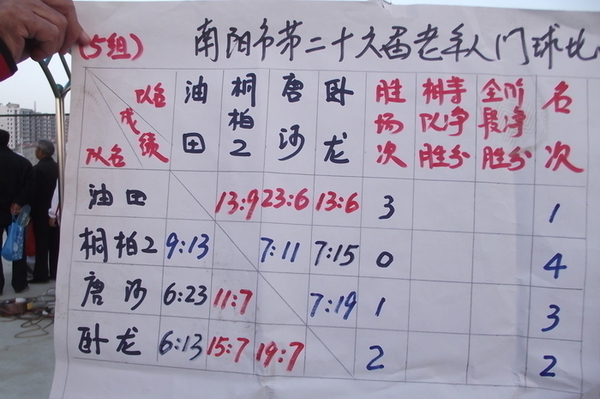 (5组) 南阳市第二十六届老年人门球比
队名 成绩 队名 油田 桐柏2 唐河 卧龙 胜场次 相等队净胜分 全阶段净胜分 名次
油田 13:9 23:6 13:6 3 1
桐柏2 9:13 7:11 7:15 0 4
唐河 6:23 11:7 7:19 1 3
卧龙 6:13 15:7 19:7 2 2